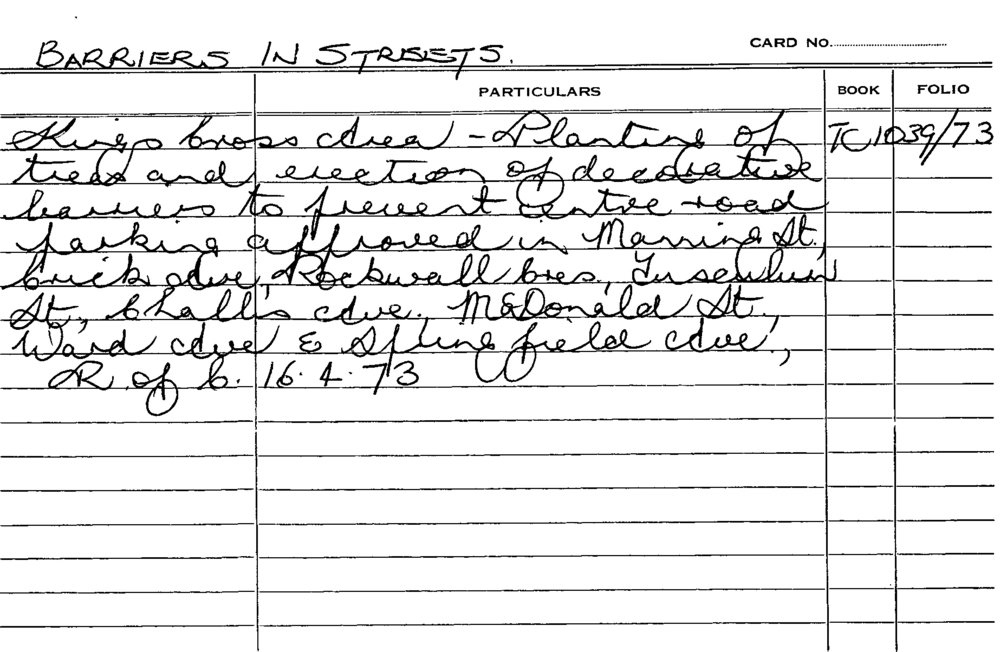 BARRIERS IN STREETS.
CARD No.
PARTICULARS BOOK FOLIO
Kings Cross Area - Planting of TC1039/73
trees and erection of decorative
barriers to prevent centre road
parking approved in Manning St,
Crick Ave, Rockwall Cres., Tusculum
St., Challis Ave., McDonald St.,
Ward Ave & Springfield Ave.,
R. of C. 16.4.73